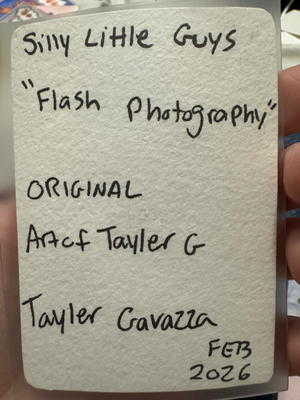 Silly Little Guys
"Flash Photography"
ORIGINAL
Artof Tayler G
Tayler Gavazza
FEB
2026